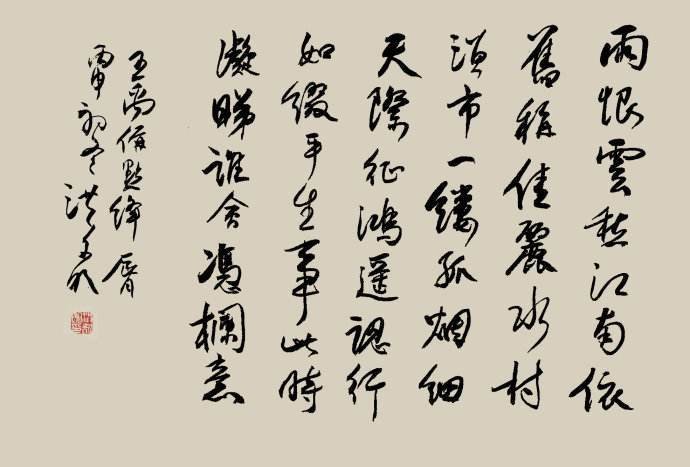 雨恨雲愁江南依
舊稱佳麗水村
漁市一縷孤烟細
天際征鴻遥認行
如綴平生事此時
凝睇誰會憑欄意
王禹偁點絳唇
丙申初冬洪